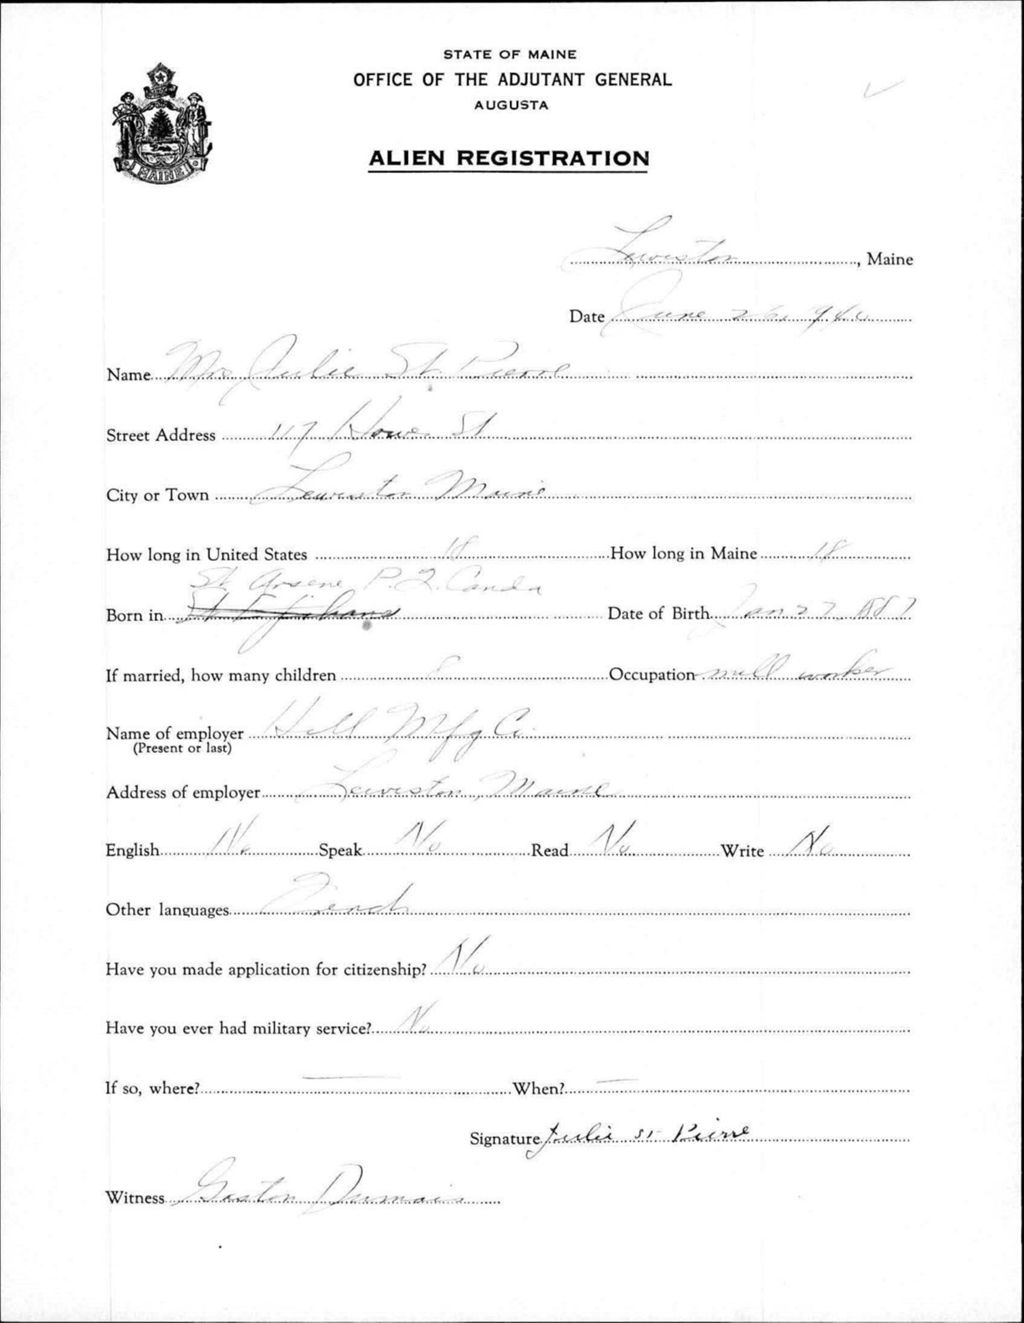 STATE OF MAINE
OFFICE OF THE ADJUTANT GENERAL
AUGUSTA
MAINE
ALIEN REGISTRATION
Lewiston, Maine
Date June 26, 1940
Name Mrs Julie St. Pierre
Street Address 117 Howe St
City or Town Lewiston Maine
How long in United States 18 How long in Maine 18
St Arsene P.Q. Canda
Born in Date of Birth Jan 27 1887
If married, how many children 8 Occupation mill worker
Name of employer Hill Mfg Co.
(Present or last)
Address of employer Lewiston, Maine
English No Speak No Read No Write No
Other languages French
Have you made application for citizenship? No
Have you ever had military service? No
If so, where? — When? —
Signature Julie St Pierre
Witness Gaston Dumais